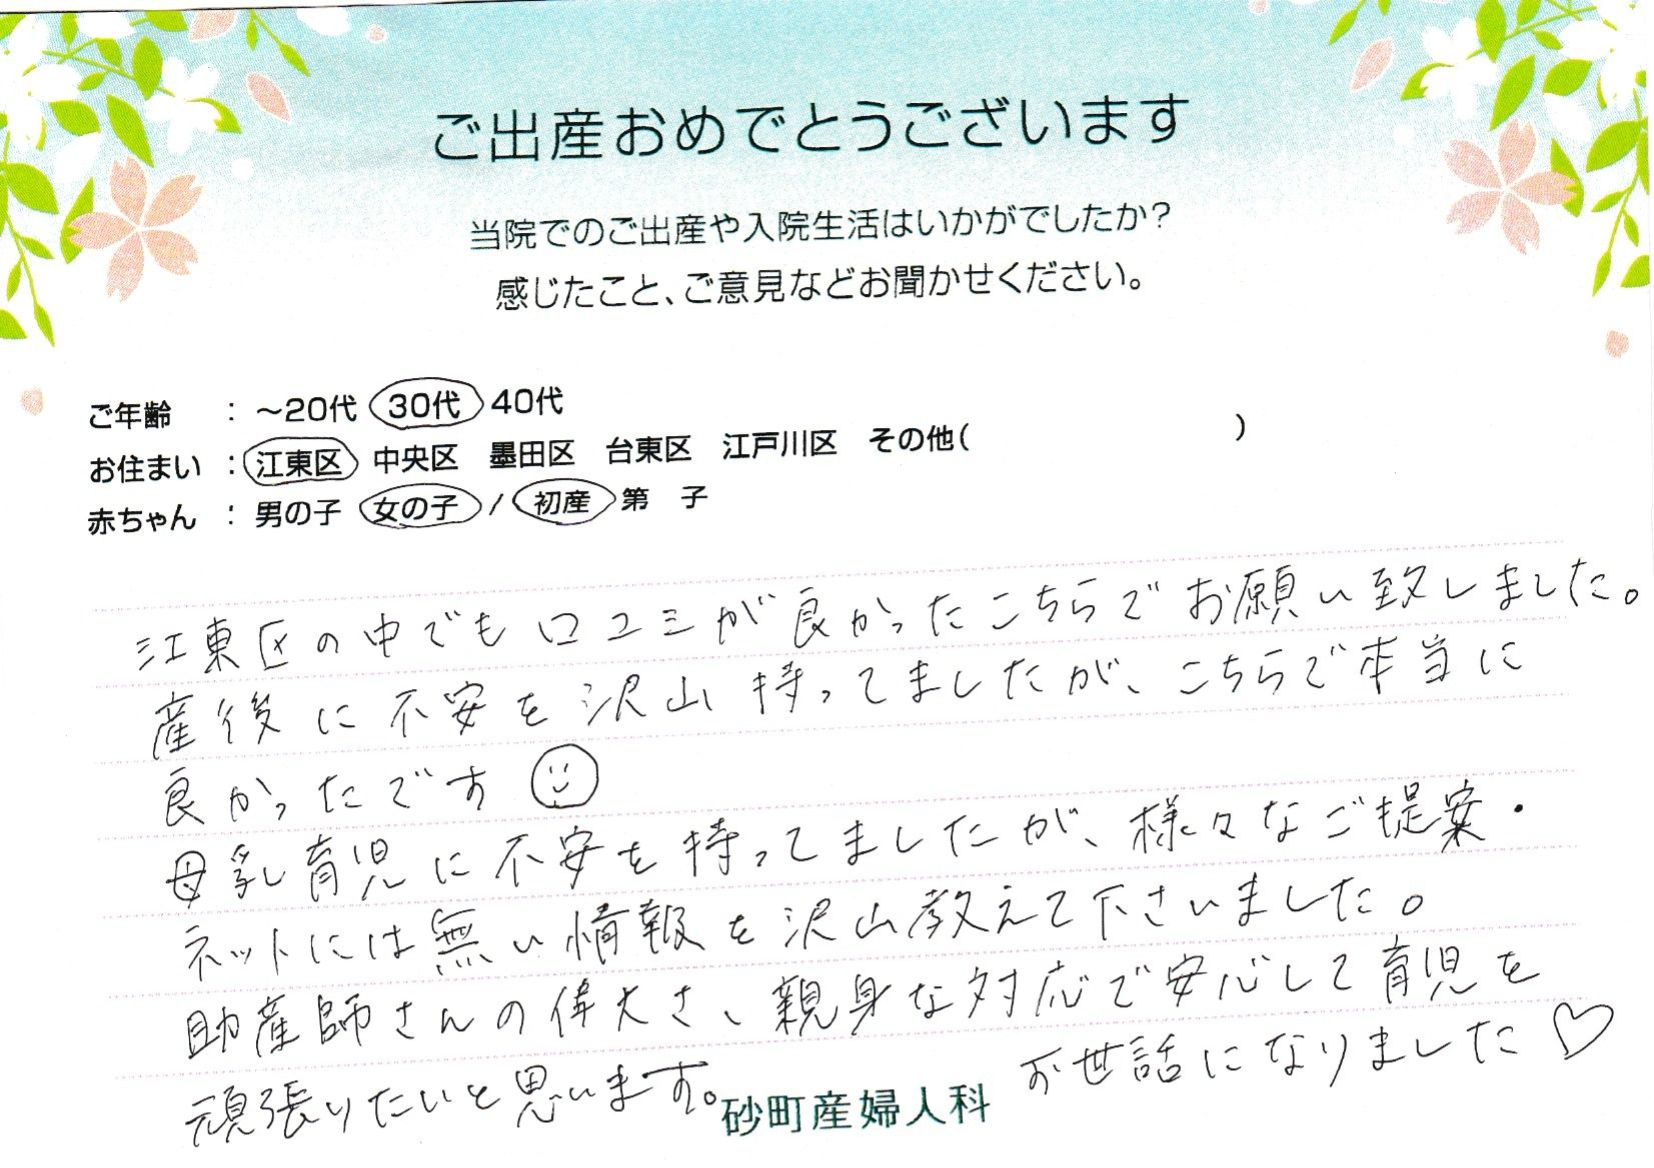 ご出産おめでとうございます
当院でのご出産や入院生活はいかがでしたか？
感じたこと、ご意見などお聞かせください。
ご年齢 ： ～20代 30代 40代
お住まい ： 江東区 中央区 墨田区 台東区 江戸川区 その他( )
赤ちゃん ： 男の子 女の子 / 初産 第 子
江東区の中でも口コミが良かったこちらでお願い致しました。
産後に不安を沢山持ってましたが、こちらで本当に
良かったです
母乳育児に不安を持ってましたが、様々なご提案・
ネットには無い情報を沢山教えて下さいました。
助産師さんの偉大さ、親身な対応で安心して育児を
頑張りたいと思います。 お世話になりました♡
砂町産婦人科